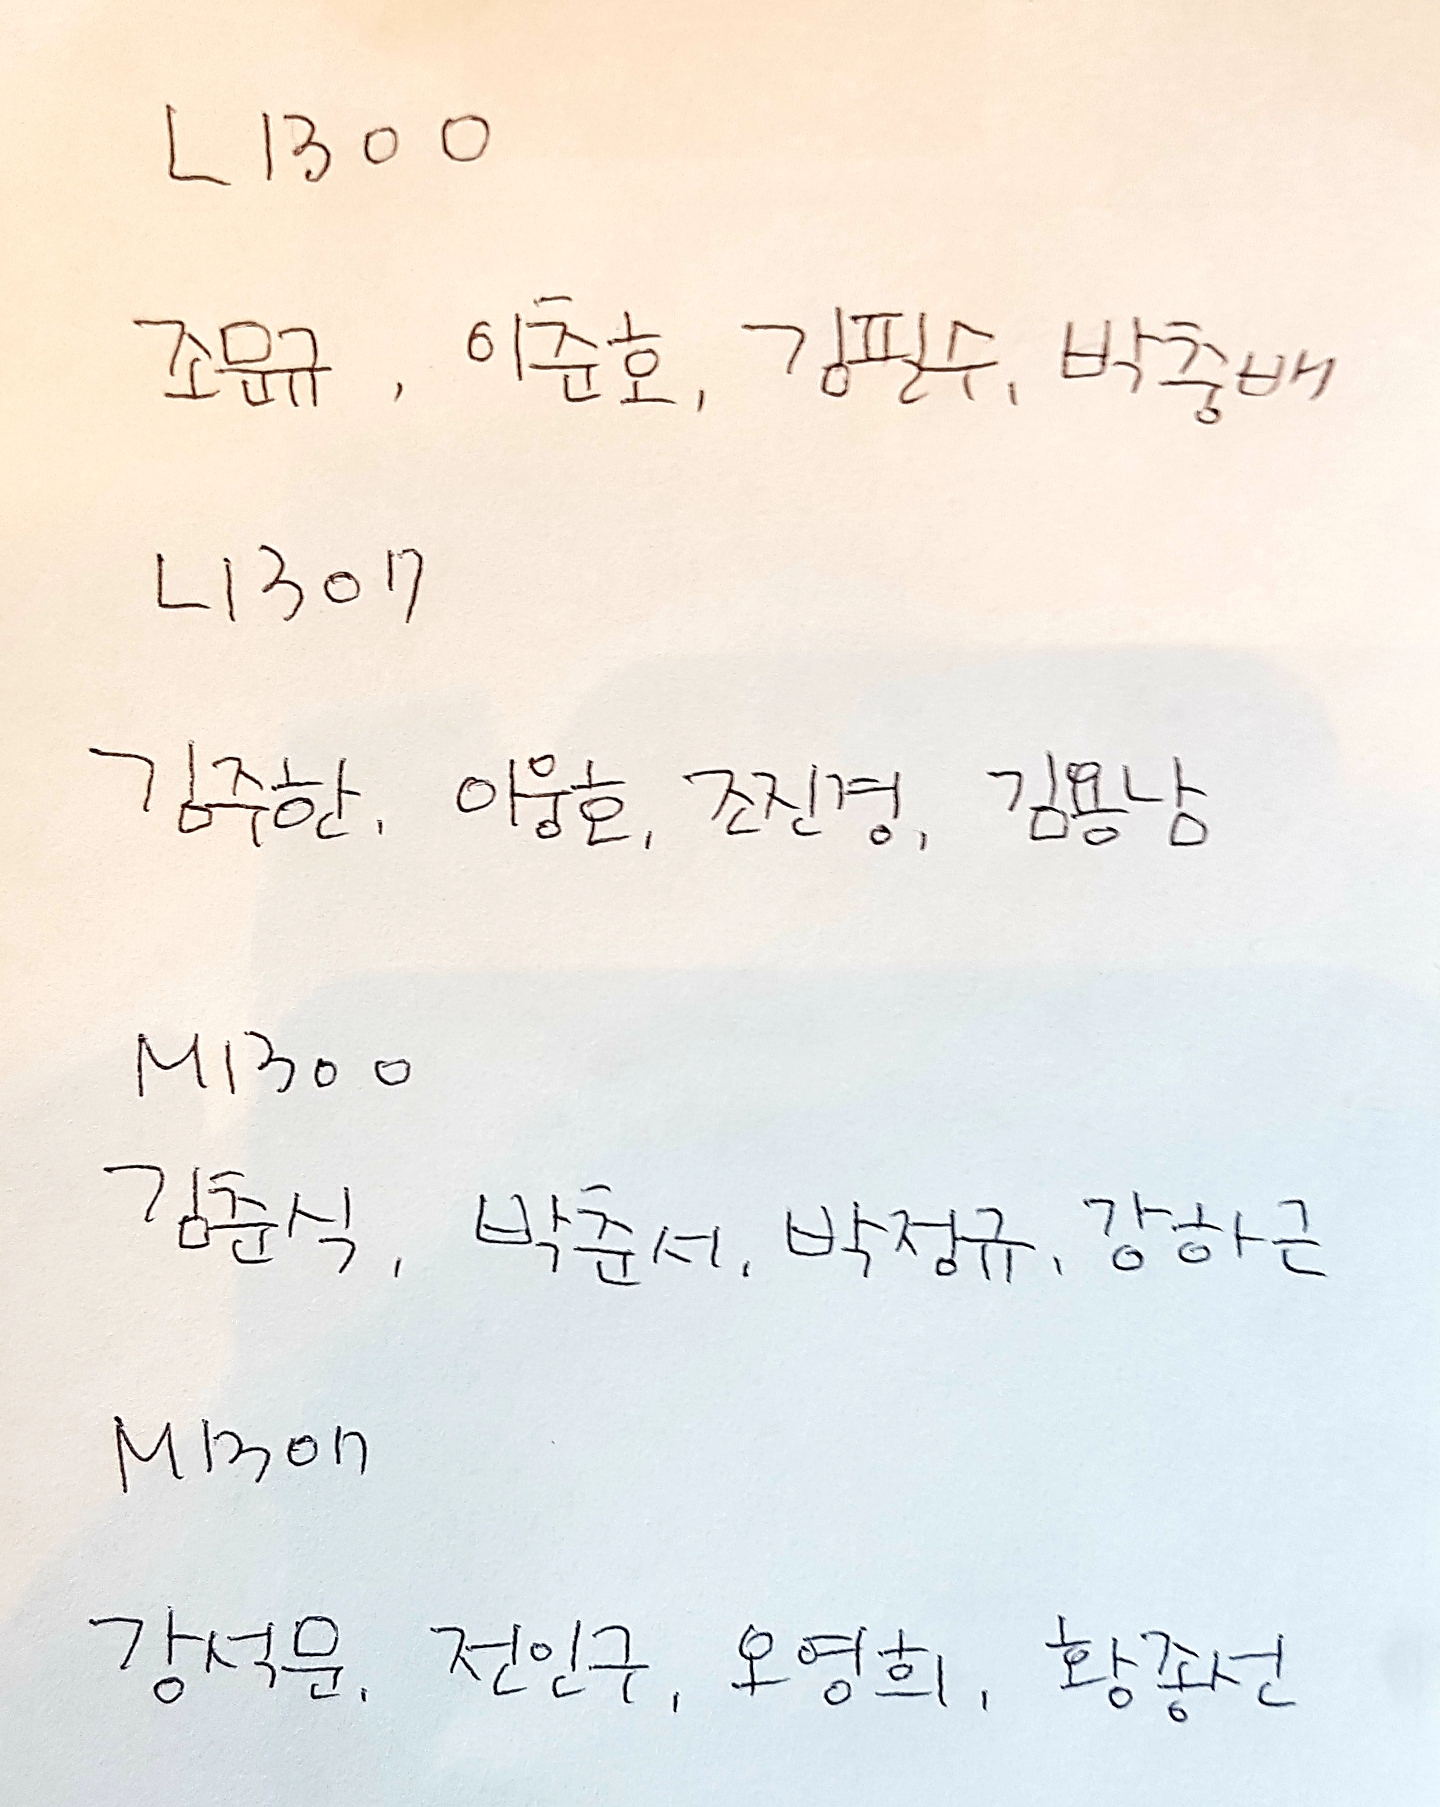 L1300
조문규, 이춘호, 김필수, 박중배
L1307
김주한, 이웅호, 조진경, 김용남
M1300
김춘식, 박춘서, 박정규, 강하근
M1307
강석문, 전인구, 오영희, 황종선